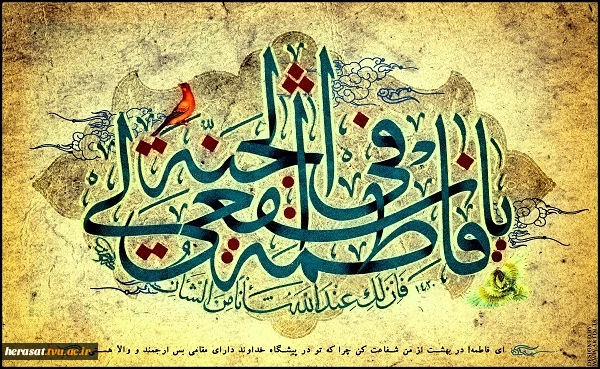 یا فاطمة اشفعی لی فی الجنة
فان لك عند الله شأنا من الشأن
۱۴۲۰
ای فاطمه! در بهشت از من شفاعت کن چرا که تو در پیشگاه خداوند دارای مقامی بس ارجمند و والا هستی
herasat.tvu.ac.ir